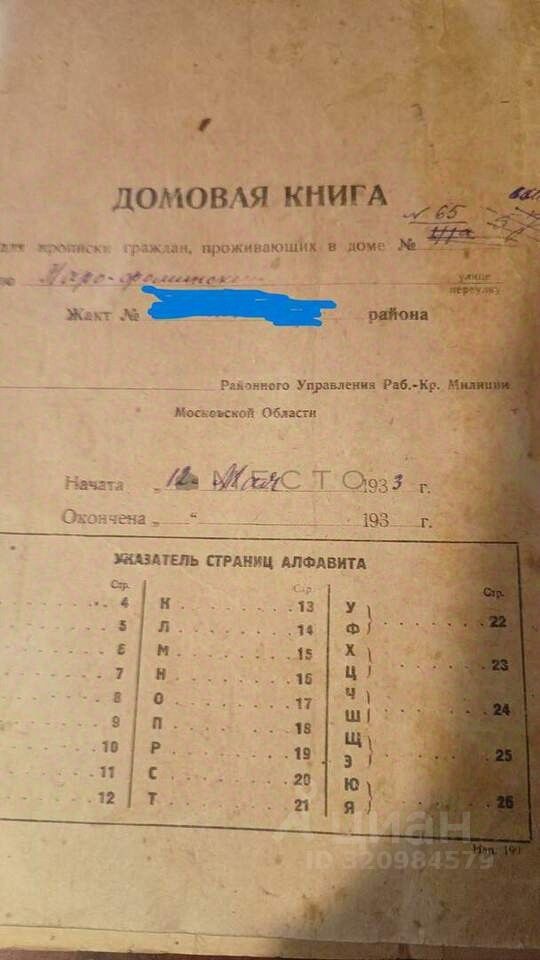 ДОМОВАЯ КНИГА
для прописки граждан, проживающих в доме № N 65
по Наро-Фоминск улице переулку
Жакт № района
Районного Управления Раб.-Кр. Милиции
Московской Области
Начата „ 12 " Мая 1933 г.
МЕСТО
Окончена „ “ 193 г.
УКАЗАТЕЛЬ СТРАНИЦ АЛФАВИТА
Стр. Стр. Стр.
4 К 13 У Ф 22
5 Л 14
6 М 15 Х Ц 23
7 Н 16
8 О 17 Ч Ш 24
9 П 18
10 Р 19 Щ Э 25
11 С 20
12 Т 21 Ю Я 26
циан
ID 320984579